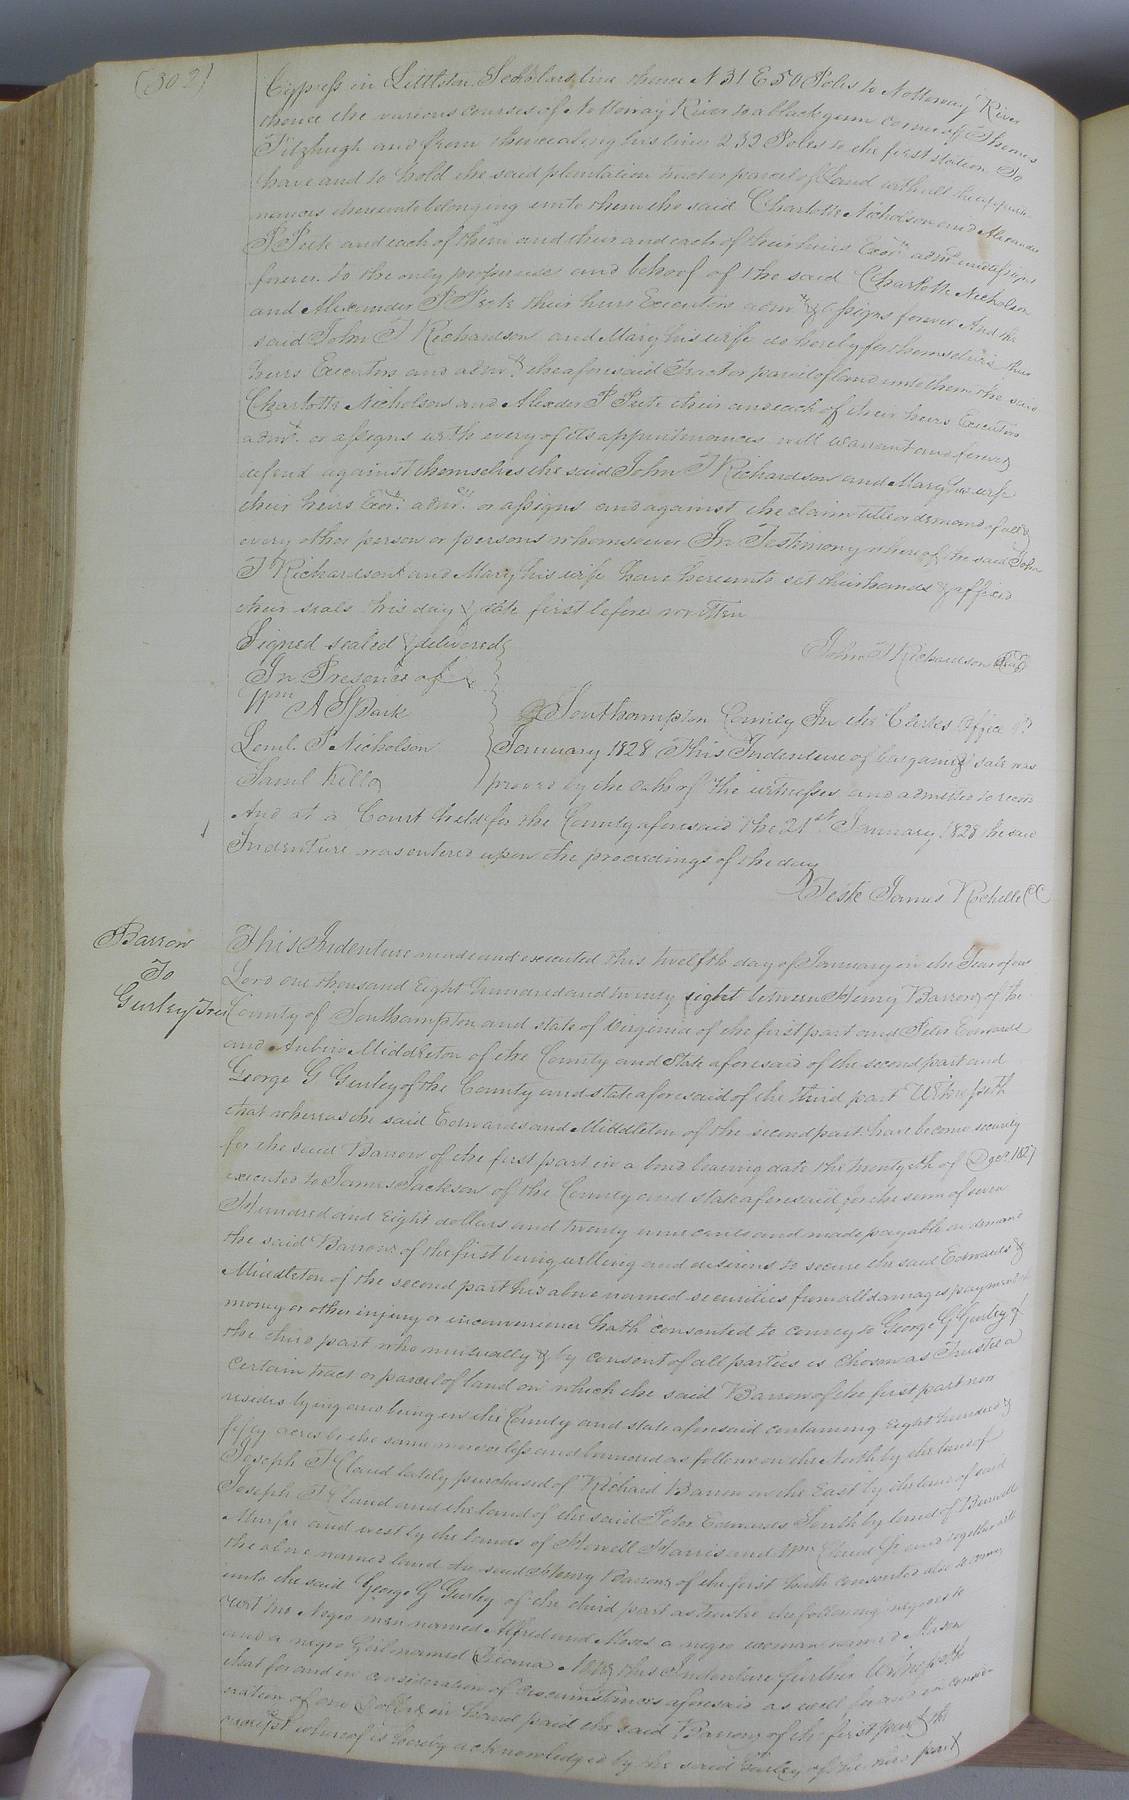 (302)
Cyppress in Littleton Scholars line thence N 31 E 50 Poles to Nottoway River
thence the various courses of Nottoway River to a black gum corner of Thomas
Fitzhugh and from thence along his line 232 Poles to the first station To
have and to hold the said plantation tract or parcel of Land with all the appurte
nances thereunto belonging unto them the said Charlotte Nicholson and Alexander
P Peete and each of them and their and each of their heirs Exors admrs and assigns
forever to the only proper use and behoof of the said Charlotte Nicholson
and Alexander P Peete their heirs Executors admrs & assigns forever And the
said John T Richardson and Mary his wife do hereby for themselves their
heirs Executors and admrs the aforesaid Tract or parcel of land unto them the said
Charlotte Nicholson and Alexder P Peete their and each of their heirs Executors
admrs or assigns with every of its appurtenances will warrant and forever
defend against themselves the said John T Richardson and Mary his wife
their heirs Exors admrs or assigns and against the claim title or demand of all &
every other person or persons whomsoever In Testimony whereof the said John
T Richardson and Mary his wife have hereunto set their hands & affixed
their seals this day & date first before written
Signed sealed & delivered
In Presence of
John T Richardson Seal
Wm A Spark
Leml. P Nicholson
Saml Kello
Southampton County In the Clerks Office
January 1828 This Indenture of bargain & sale was
proved by the oaths of the witnesses and admitted to record
And at a Court held for the County aforesaid the 21st January 1828 the said
Indenture was entered upon the proceedings of the day
Teste James Rochelle CC
Barrow
To
Gurley Trus
This Indenture made and executed this twelfth day of January in the Year of our
Lord one thousand Eight hundred and twenty eight between Henry Barrow of the
County of Southampton and state of Virginia of the first part and Peter Edwards
and Middleton of the County and State aforesaid of the second part and
George G Gurley of the County and state aforesaid of the third part Witnesseth
that whereas the said Edwards and Middleton of the second part have become security
for the said Barrow of the first part in a bond bearing date the twentyeth of 1827
executed to James Jackson of the County and state aforesaid for the sum of seven
Hundred and Eight dollars and twenty nine cents and made payable on demand
the said Barrow of the first being willing and desirous to secure the said Edwards &
Middleton of the second part his above named securities from all damages payment of
money or other injury or inconvenience hath consented to convey to George G Gurley of
the third part who mutually & by consent of all parties is chosen as Trustee a
certain tract or parcel of land on which the said Barrow of the first part now
resides lying and being in the County and state aforesaid containing Eight hundred &
fifty acres be the same more or less and bounded as follows on the North by the land of
Joseph T Claud lately purchased of Richard Barrow on the East by the land of said
Joseph T Claud and the land of the said Peter Edwards South by land of Burwell
Murfee and west by the lands of Howell Harris and Wm Claud Jr and together with
the above named land the said Henry Barrow of the first hath consented also to convey
unto the said George G Gurley of the third part as trustee the following negroes to
wit two Negro men named Alfred and Moses a negro woman named Mason
and a negro Girl named Now this Indenture further Witnesseth
that for and in consideration of circumstances aforesaid as well for and in consid-
eration of one Dollar in hand paid the said Barrow of the first part the
receipt whereof is hereby acknowledged by the said Gurley of the part